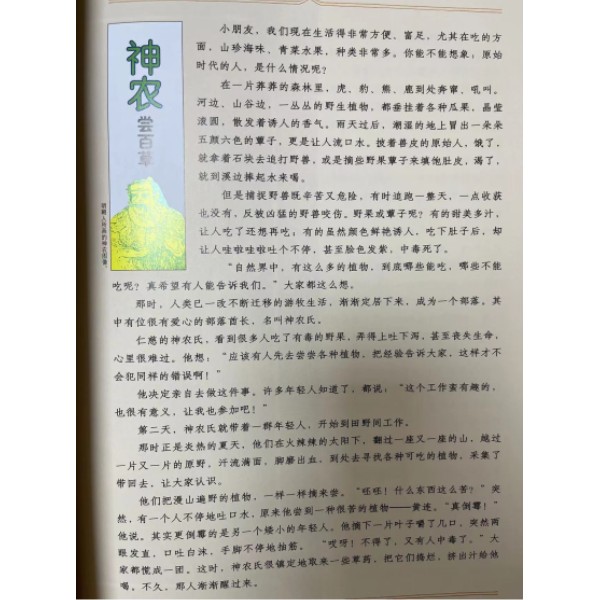 神农
尝百草
小朋友，我们现在生活得非常方便、富足，尤其在吃的方
面，山珍海味、青菜水果，种类非常多。你能不能想象，原始
时代的人，是什么情况呢？
在一片莽莽的森林里，虎、豹、熊、鹿到处奔窜、吼叫。
河边、山谷边，一丛丛的野生植物，都垂挂着各种瓜果，晶莹
滚圆，散发着诱人的香气。雨天过后，潮湿的地上冒出一朵朵
五颜六色的蕈子，更是让人流口水。披着兽皮的原始人，饿了，
就拿着石块去追打野兽，或是摘些野果蕈子来填他肚皮，渴了，
就到溪边捧起水来喝。
但是捕捉野兽既辛苦又危险，有时追跑一整天，一点收获
也没有，反被凶猛的野兽咬伤。野果或蕈子呢？有的甜美多汁，
让人吃了还想再吃，有的虽然颜色鲜艳诱人，吃下肚子后，却
让人哇啦哇啦吐个不停，甚至脸色发紫，中毒死了。
“自然界中，有这么多的植物，到底哪些能吃，哪些不能
吃呢？真希望有人能告诉我们。”大家都这么想。
那时，人类已一改不断迁移的游牧生活，渐渐定居下来，成为一个部落。其
中有位很有爱心的部落酋长，名叫神农氏。
仁慈的神农氏，看到很多人吃了有毒的野果，弄得上吐下泻，甚至丧失生命，
心里很难过。他想：“应该有人先去尝尝各种植物，把经验告诉大家，这样才不
会犯同样的错误啊！”
他决定亲自去做这件事。许多年轻人知道了，都说：“这个工作蛮有趣的，
也很有意义，让我也参加吧！”
第二天，神农氏就带着一群年轻人，开始到田野间工作。
那时正是炎热的夏天，他们在火辣辣的太阳下，翻过一座又一座的山，越过
一片又一片的原野。汗流满面，脚磨出血，到处去寻找各种可吃的植物，采集了
带回去，让大家认识。
他们把漫山遍野的植物，一样一样摘来尝。“呸呸！什么东西这么苦？”突
然，有一个人不停地吐口水，原来他尝到一种很苦的植物——黄连。“真倒霉！”
他说。其实更倒霉的是另一个矮小的年轻人，他摘下一片叶子嚼了几口，突然两
眼发直，口吐白沫，手脚不停地抽筋。“哎呀！不得了，又有人中毒了。”大
家都慌成一团。这时，神农氏很镇定地取来一些草药，把它们捣烂，挤出汁给他
喝。不久，那人渐渐醒过来。